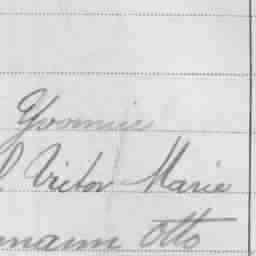 Yvonnie
l Victor Marie
mann Otto